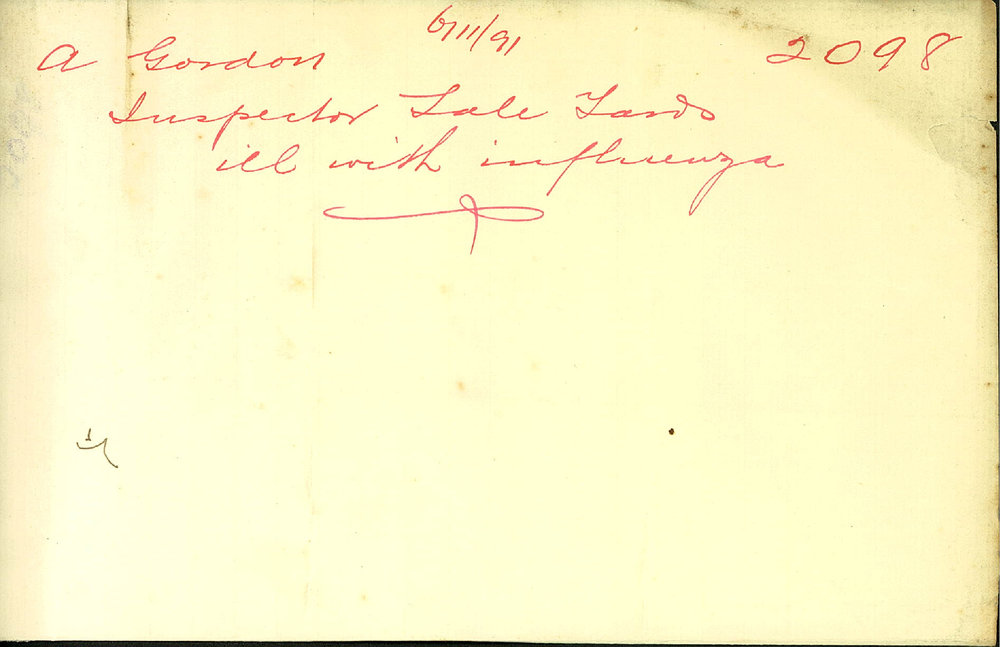 6/11/91
A Gordon 2098
Inspector Sale Yards
ill with influenza